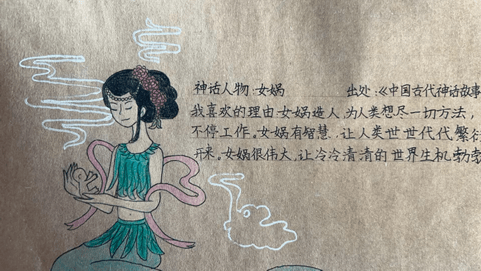 神话人物:女娲 出处:《中国古代神话故事
我喜欢的理由:女娲造人,为人类想尽一切方法,
不停工作。女娲有智慧,让人类世世代代繁衍
开来。女娲很伟大,让冷冷清清的世界生机勃勃